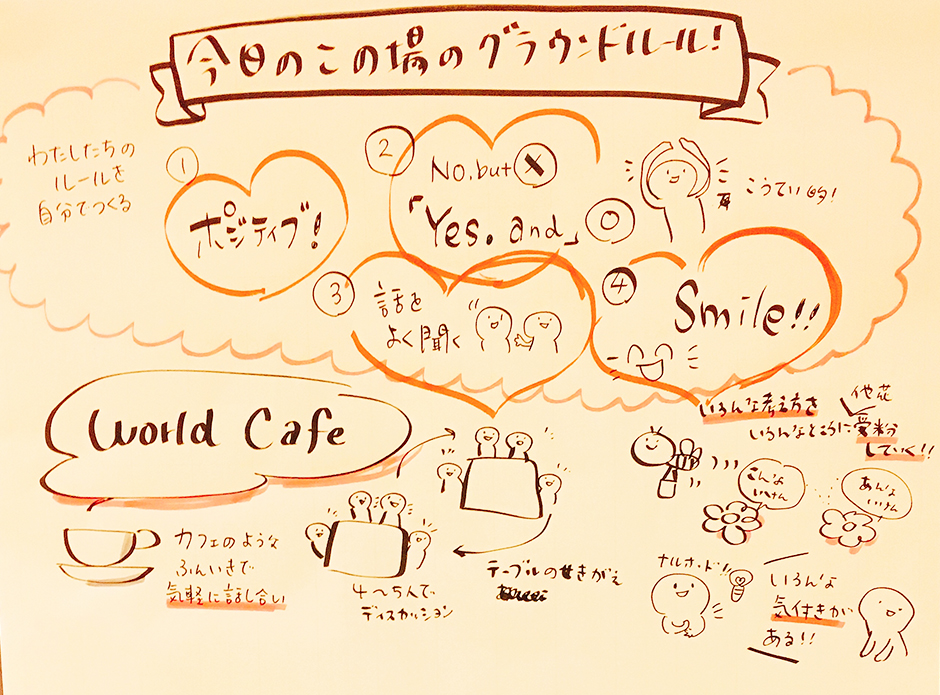 今日のこの場のグラウンドルール!
わたしたちの
ルールを
自分でつくる
① ポジティブ!
② No, but ×
「Yes. and」 ○
こうてい的!
③ 話を
よく聞く
④ Smile!!
World Cafe
カフェのような
ふんいきで
気軽に話し合い
4〜5人で
ディスカッション
テーブルのせきがえ
いろんな考え方を
他花
いろんなところに受粉
していく!!
こんな
いけん
あんな
いけん
ナルホド!!
いろんな
気付きが
ある!!